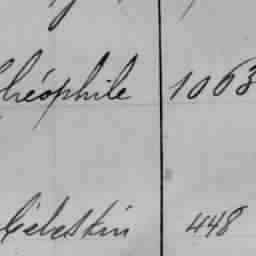 Théophile 1063
Célestin 448